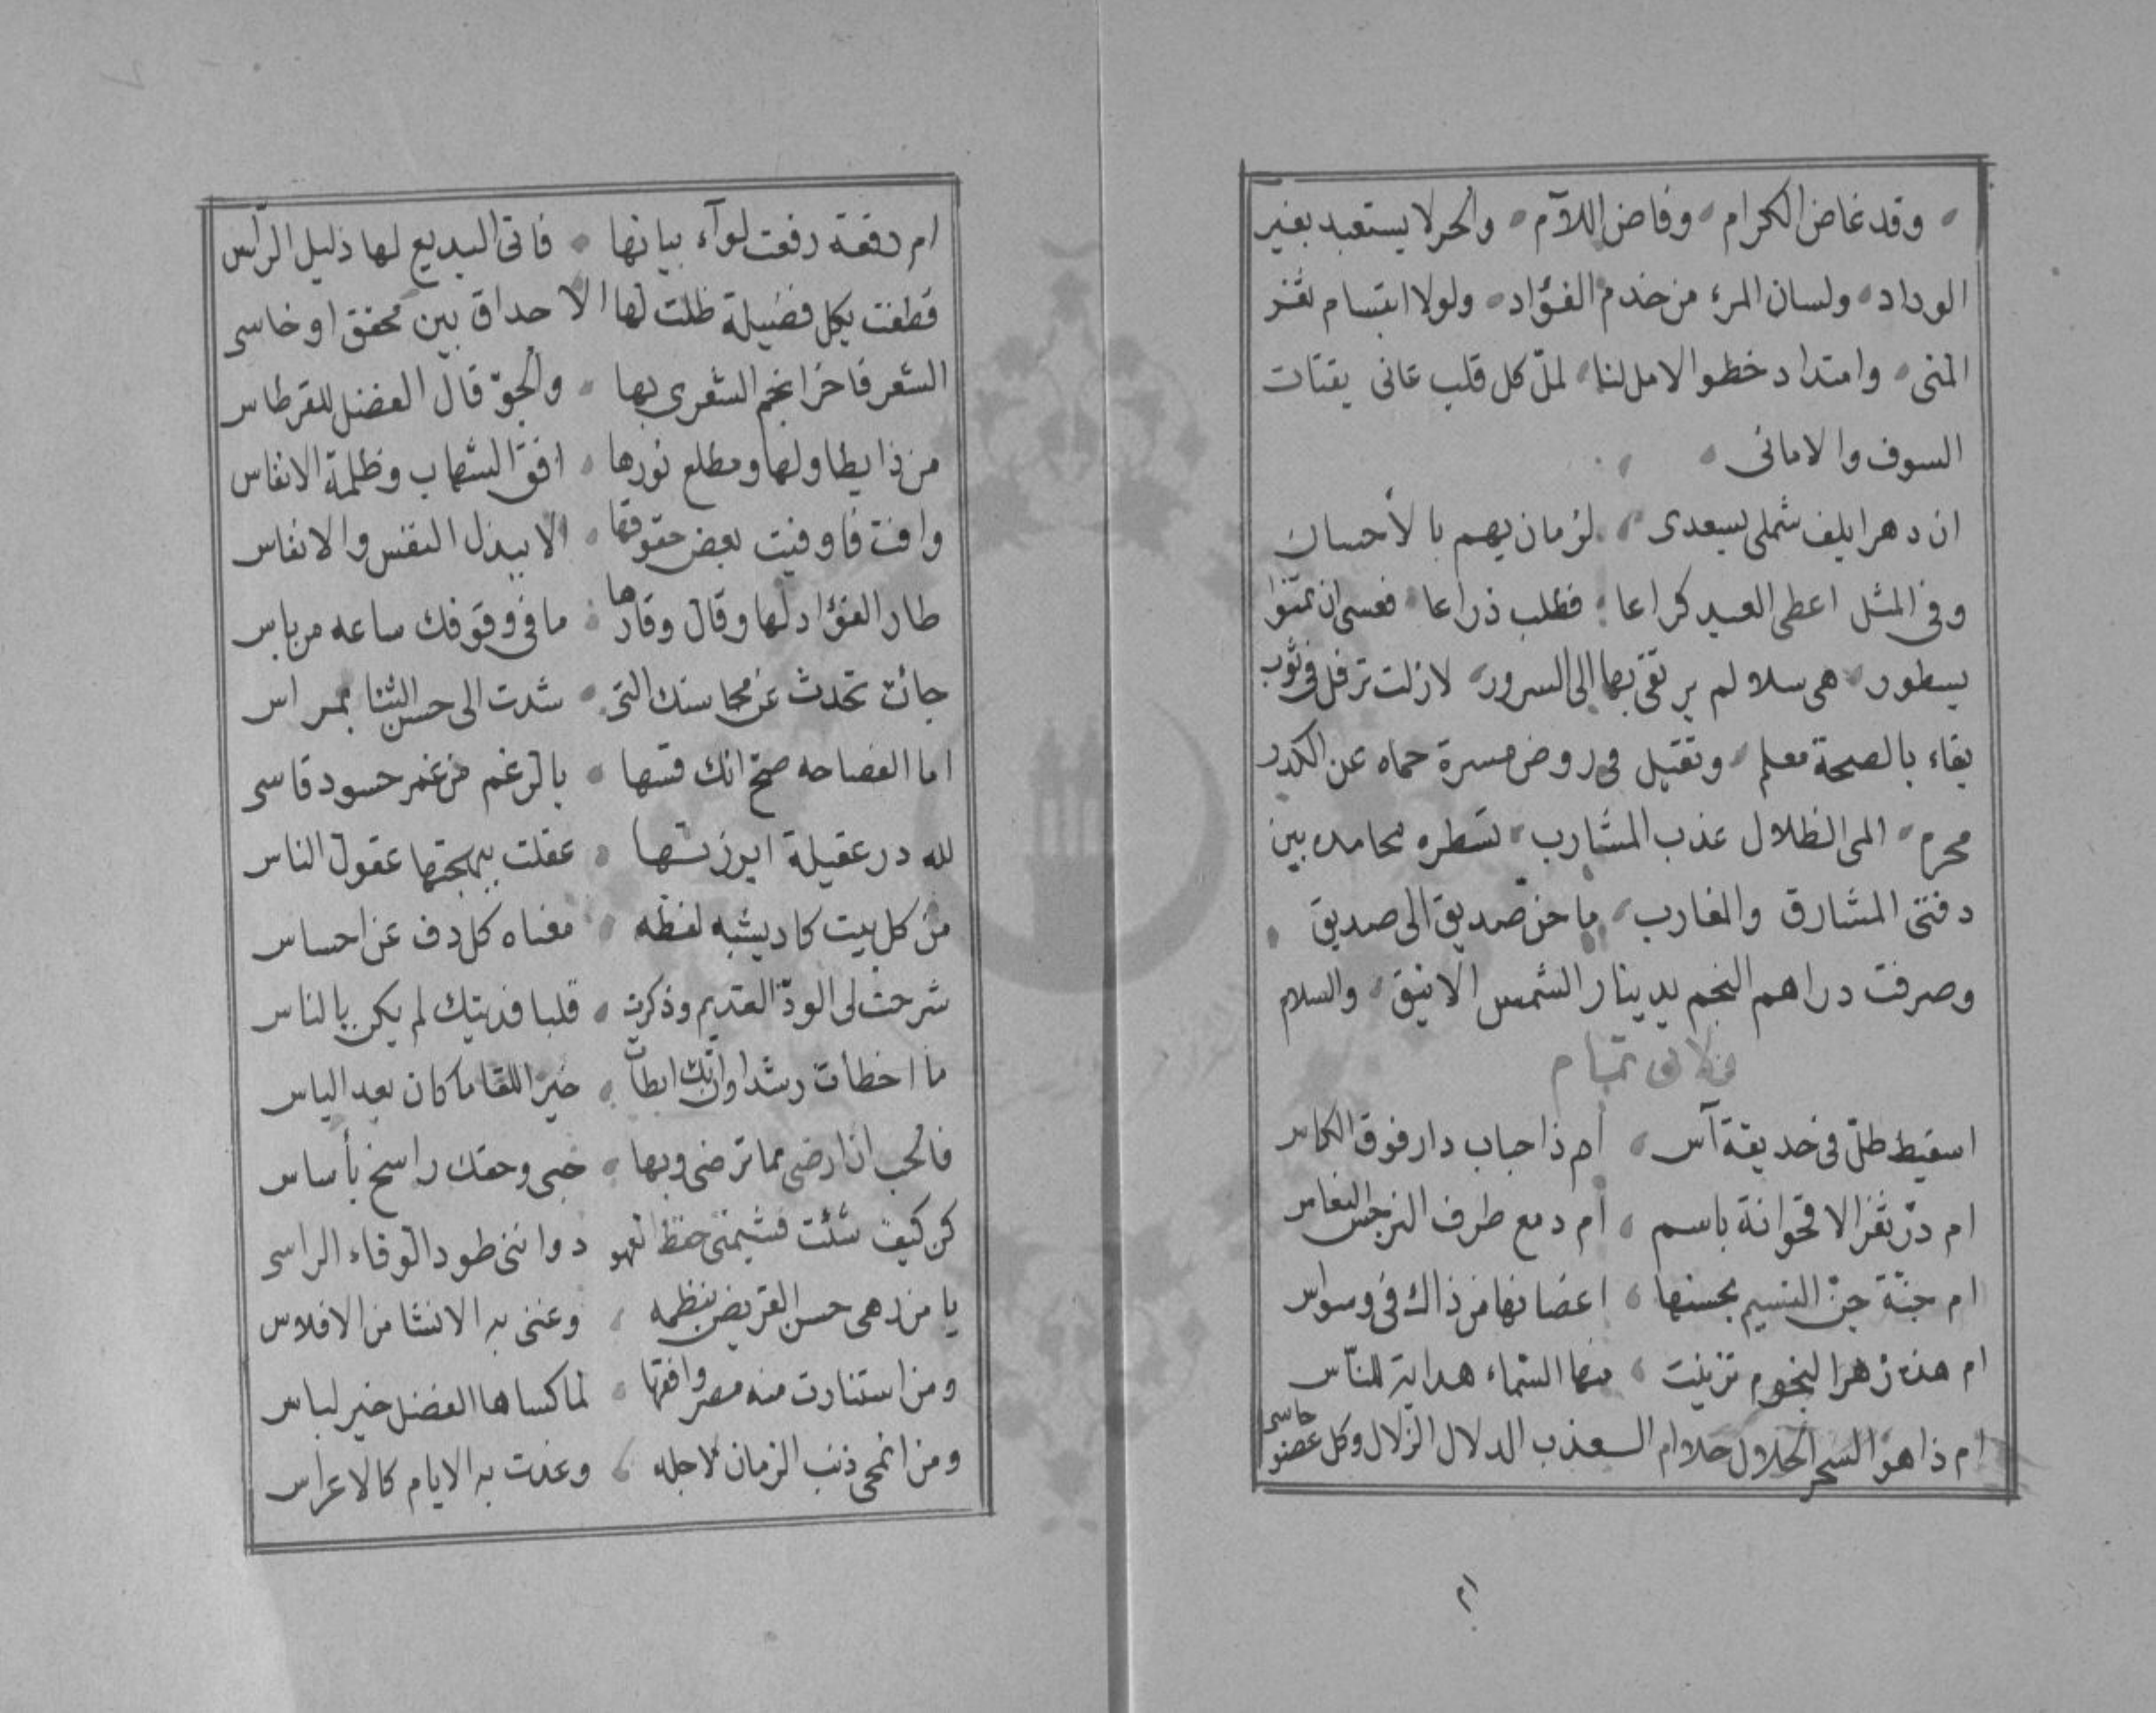 وقد غاض الكرام وفاض اللآم والحر لا يستعبد بغير
الوداد ولسان المرء من خدم الفؤاد ولولا ابتسام ثغر
المنى وامتداد خطو الامل لنا لملّ كل قلب عانى يقتات
السوف والامانى
ان دهرا يلف شملى بسعدى لزمان يهم بالأحسان
وفى المثل اعطى العبد كراعا فطلب ذراعا فعسى ان تمنوا
بسطور هى سلالم يرتقى بها الى السرور لازلت ترفل فى ثوب
بقاء بالصحة معلم وتقيل فى روض مسرة حماه عن الكدر
محرم المى الظلال عذب المشارب تسطره محامده بين
دفتى المشارق والمغارب ما حن صديق الى صديق
وصرفت دراهم النجم بدينار الشمس الانيق والسلام
اسقيط طلّ فى حديقة آس أم ذا حباب دار فوق الكاس
ام درّ ثغر الاقحوانة باسم أم دمع طرف النرجس النعاس
ام جنّة جنّ النسيم بحسنها اغصانها من ذاك فى وسواس
ام هذه زهر النجوم تزينت منها السماء هداية للنّاس
ام ذا هو السحر الحلال حلا ام العذب الدلال الزلال وكل غصنو حاسى
ام
ام رقعة رفعت لوآء بيانها فاتى البديع لها ذليل الرّاس
قطفت بكل فضيلة ظلت لها الاحداق بين محقق او خاسى
الشعر فاخر انجم الشعرى بها والجوّ قال الفضل للقرطاس
من ذا يطاولها ومطلع نورها افق الشهاب وظلمة الانقاس
وافت فاوفيت بعض حقوقها الا ببذل النفس والانفاس
طار الفؤاد لها وقال وقارها ما فى وقوفك ساعه من باس
جائت تحدث عن محاسنك التى شدت الى حسن الثنا بمراس
اما الفصاحه صح انك قسها بالرغم من غمر حسود قاسى
لله در عقيلة ابرزتها عقلت ببهجتها عقول الناس
من كل بيت كاد يشبه لفظه معناه كل دق عن احساس
شرحت لى الودّ القديم وذكرت قلبا فديتك لم يكن بالناس
ما اخطأت رشدا وانّك ابطأت خير اللقا ما كان بعد الياس
فالحب ان ارضى مما ترضى وبها حبى وحقك راسخ بأساس
كن كيف شئت فشيمتى حفظ العهود واننى طود الوفاء الراسى
يا من زهى حسن القريض بنظمه وغنى به الانشا من الافلاس
ومن استنارت منه مصر وافقها لما كساها الفضل خير لباس
ومن انمحى ذنب الزمان لاجله وغدت به الايام كالاعراس